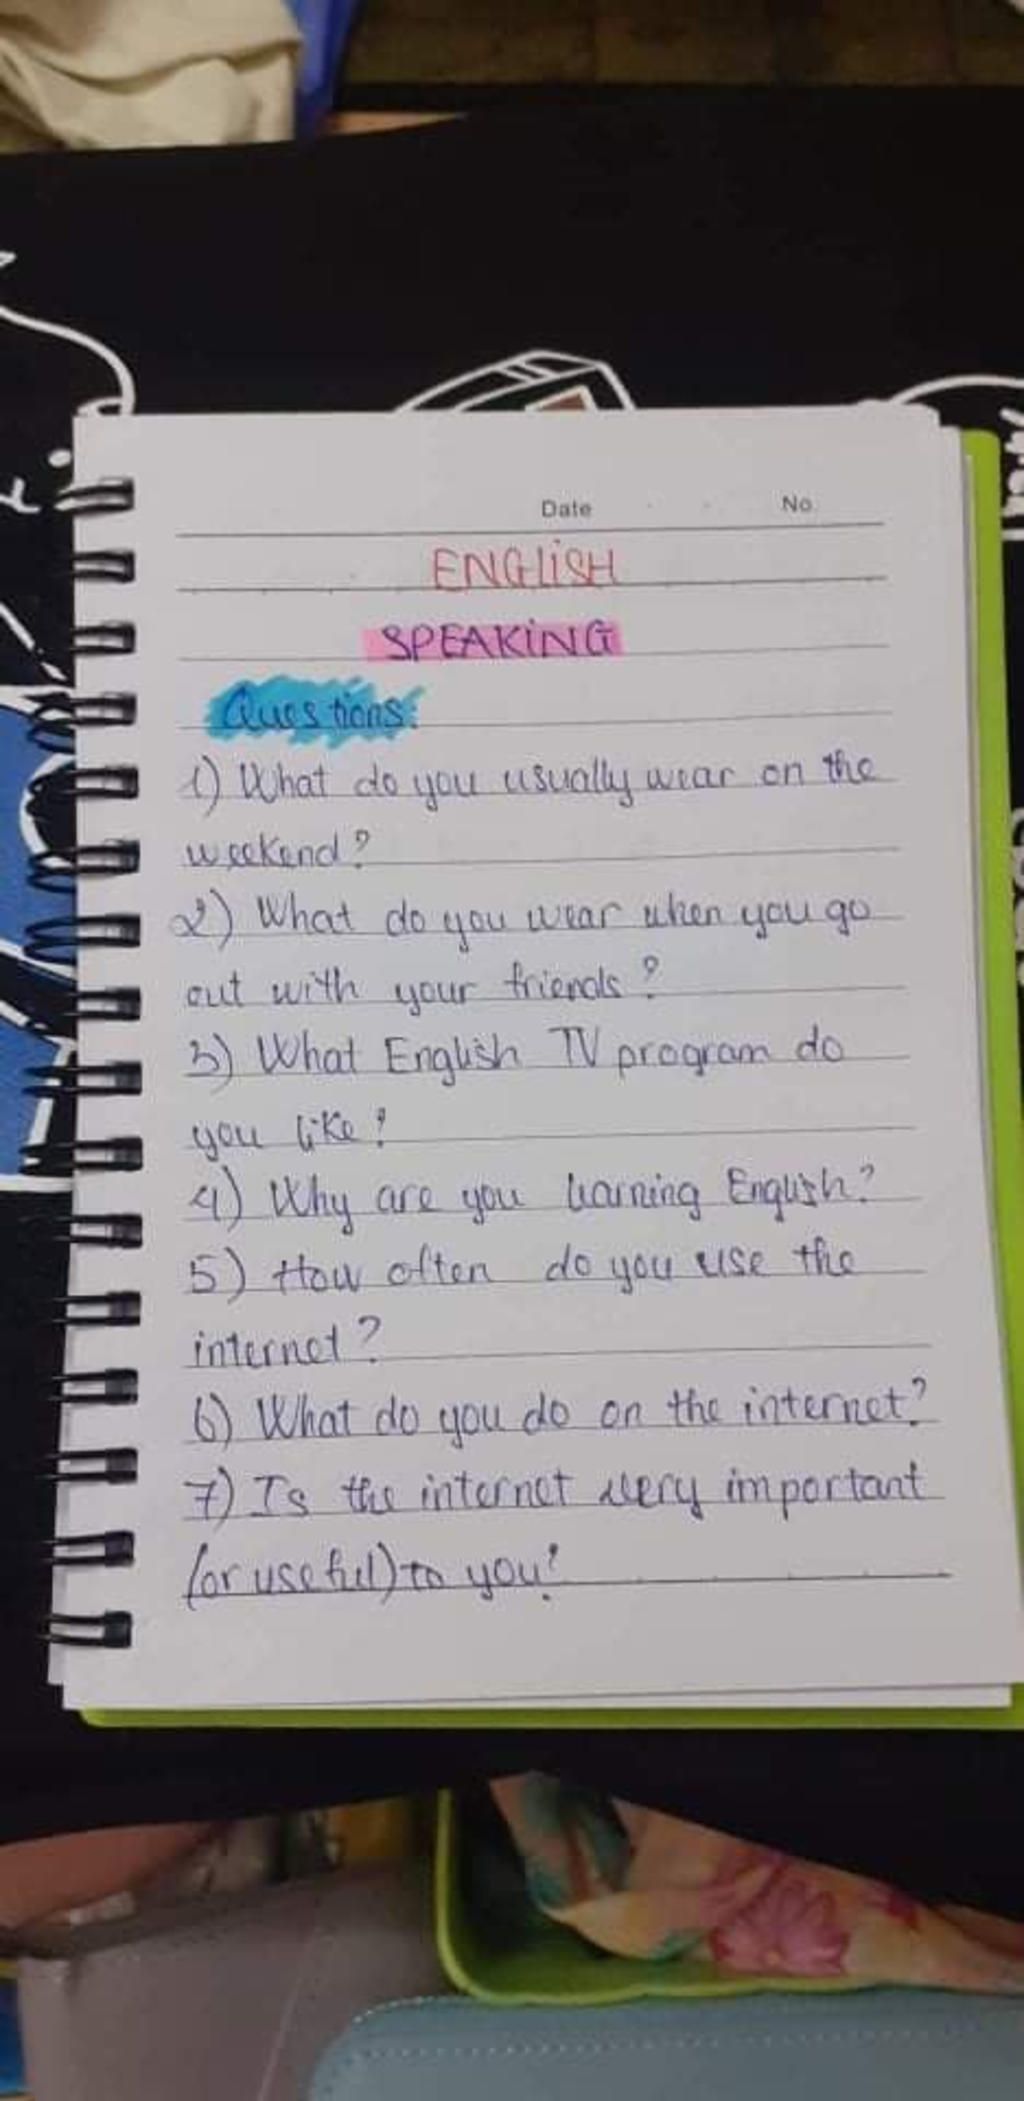 Date No
ENGLISH
SPEAKING
Questions:
1) What do you usually wear on the
weekend?
2) What do you wear when you go
out with your friends?
3) What English TV program do
you like?
4) Why are you learning English?
5) How often do you use the
internet?
6) What do you do on the internet?
7) Is the internet very important
(or useful) to you?